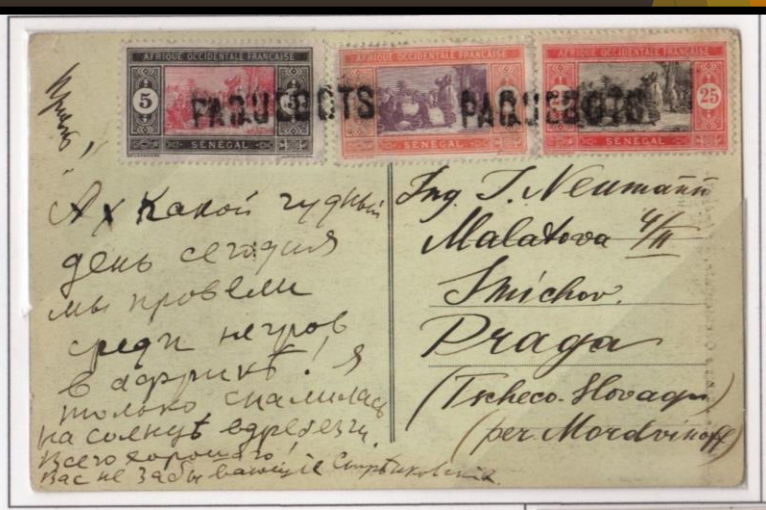 AFRIQUE OCCIDENTALE FRANÇAISE
5 5
SÉNÉGAL
AFRIQUE OCCIDENTALE FRANÇAISE
SÉNÉGAL
AFRIQUE OCCIDENTALE FRANÇAISE
25
SÉNÉGAL
PAQUEBOTS PAQUEBOTS
Ах какой чудный
день сегодня
мы провели
среди негров
в африкѣ! Я
только спалилась
на солнцѣ вдребезги.
Всего хорошаго!
Вас не забывающiе
Ing. J. Neumann
Malatova 4/II
Smichov.
Praga
(Tscheco-Slovaqu)
(per Mordvinoff)